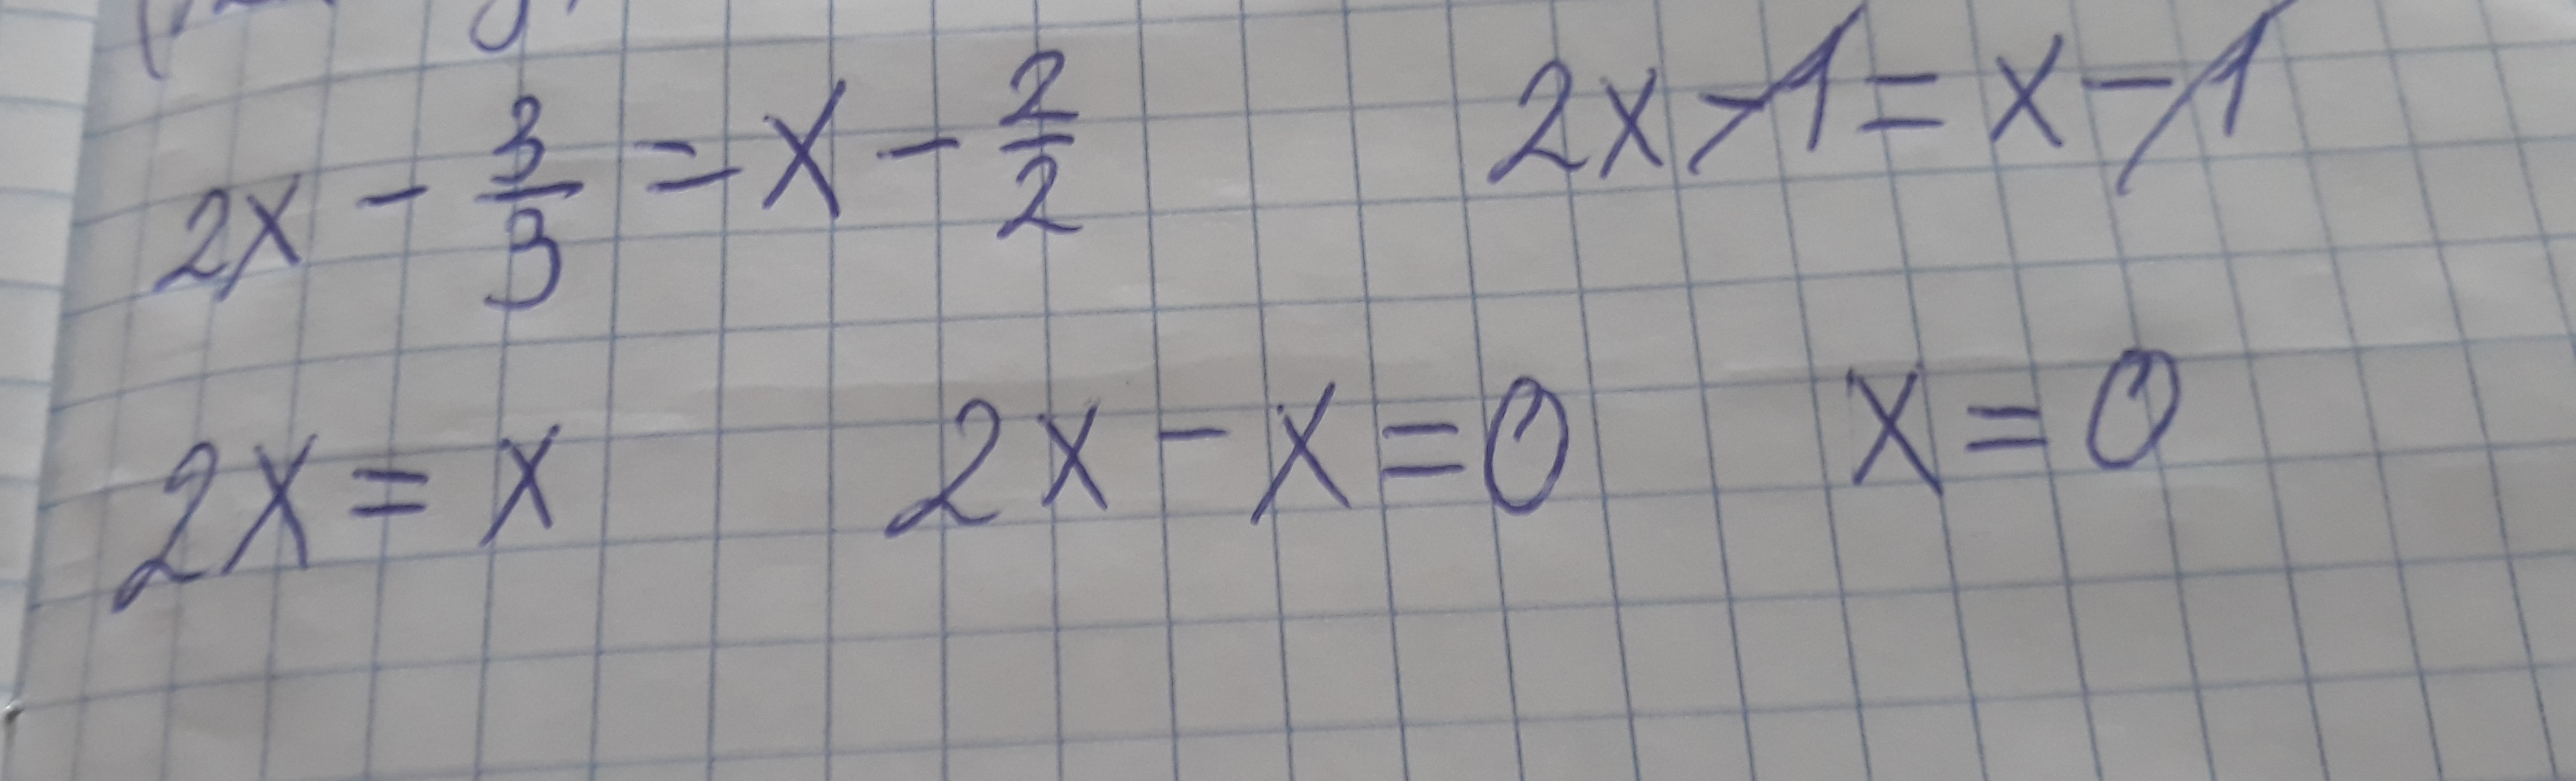 2x - 3/3 = x - 2/2 2x - 1 = x - 1
2x = x 2x - x = 0 x = 0